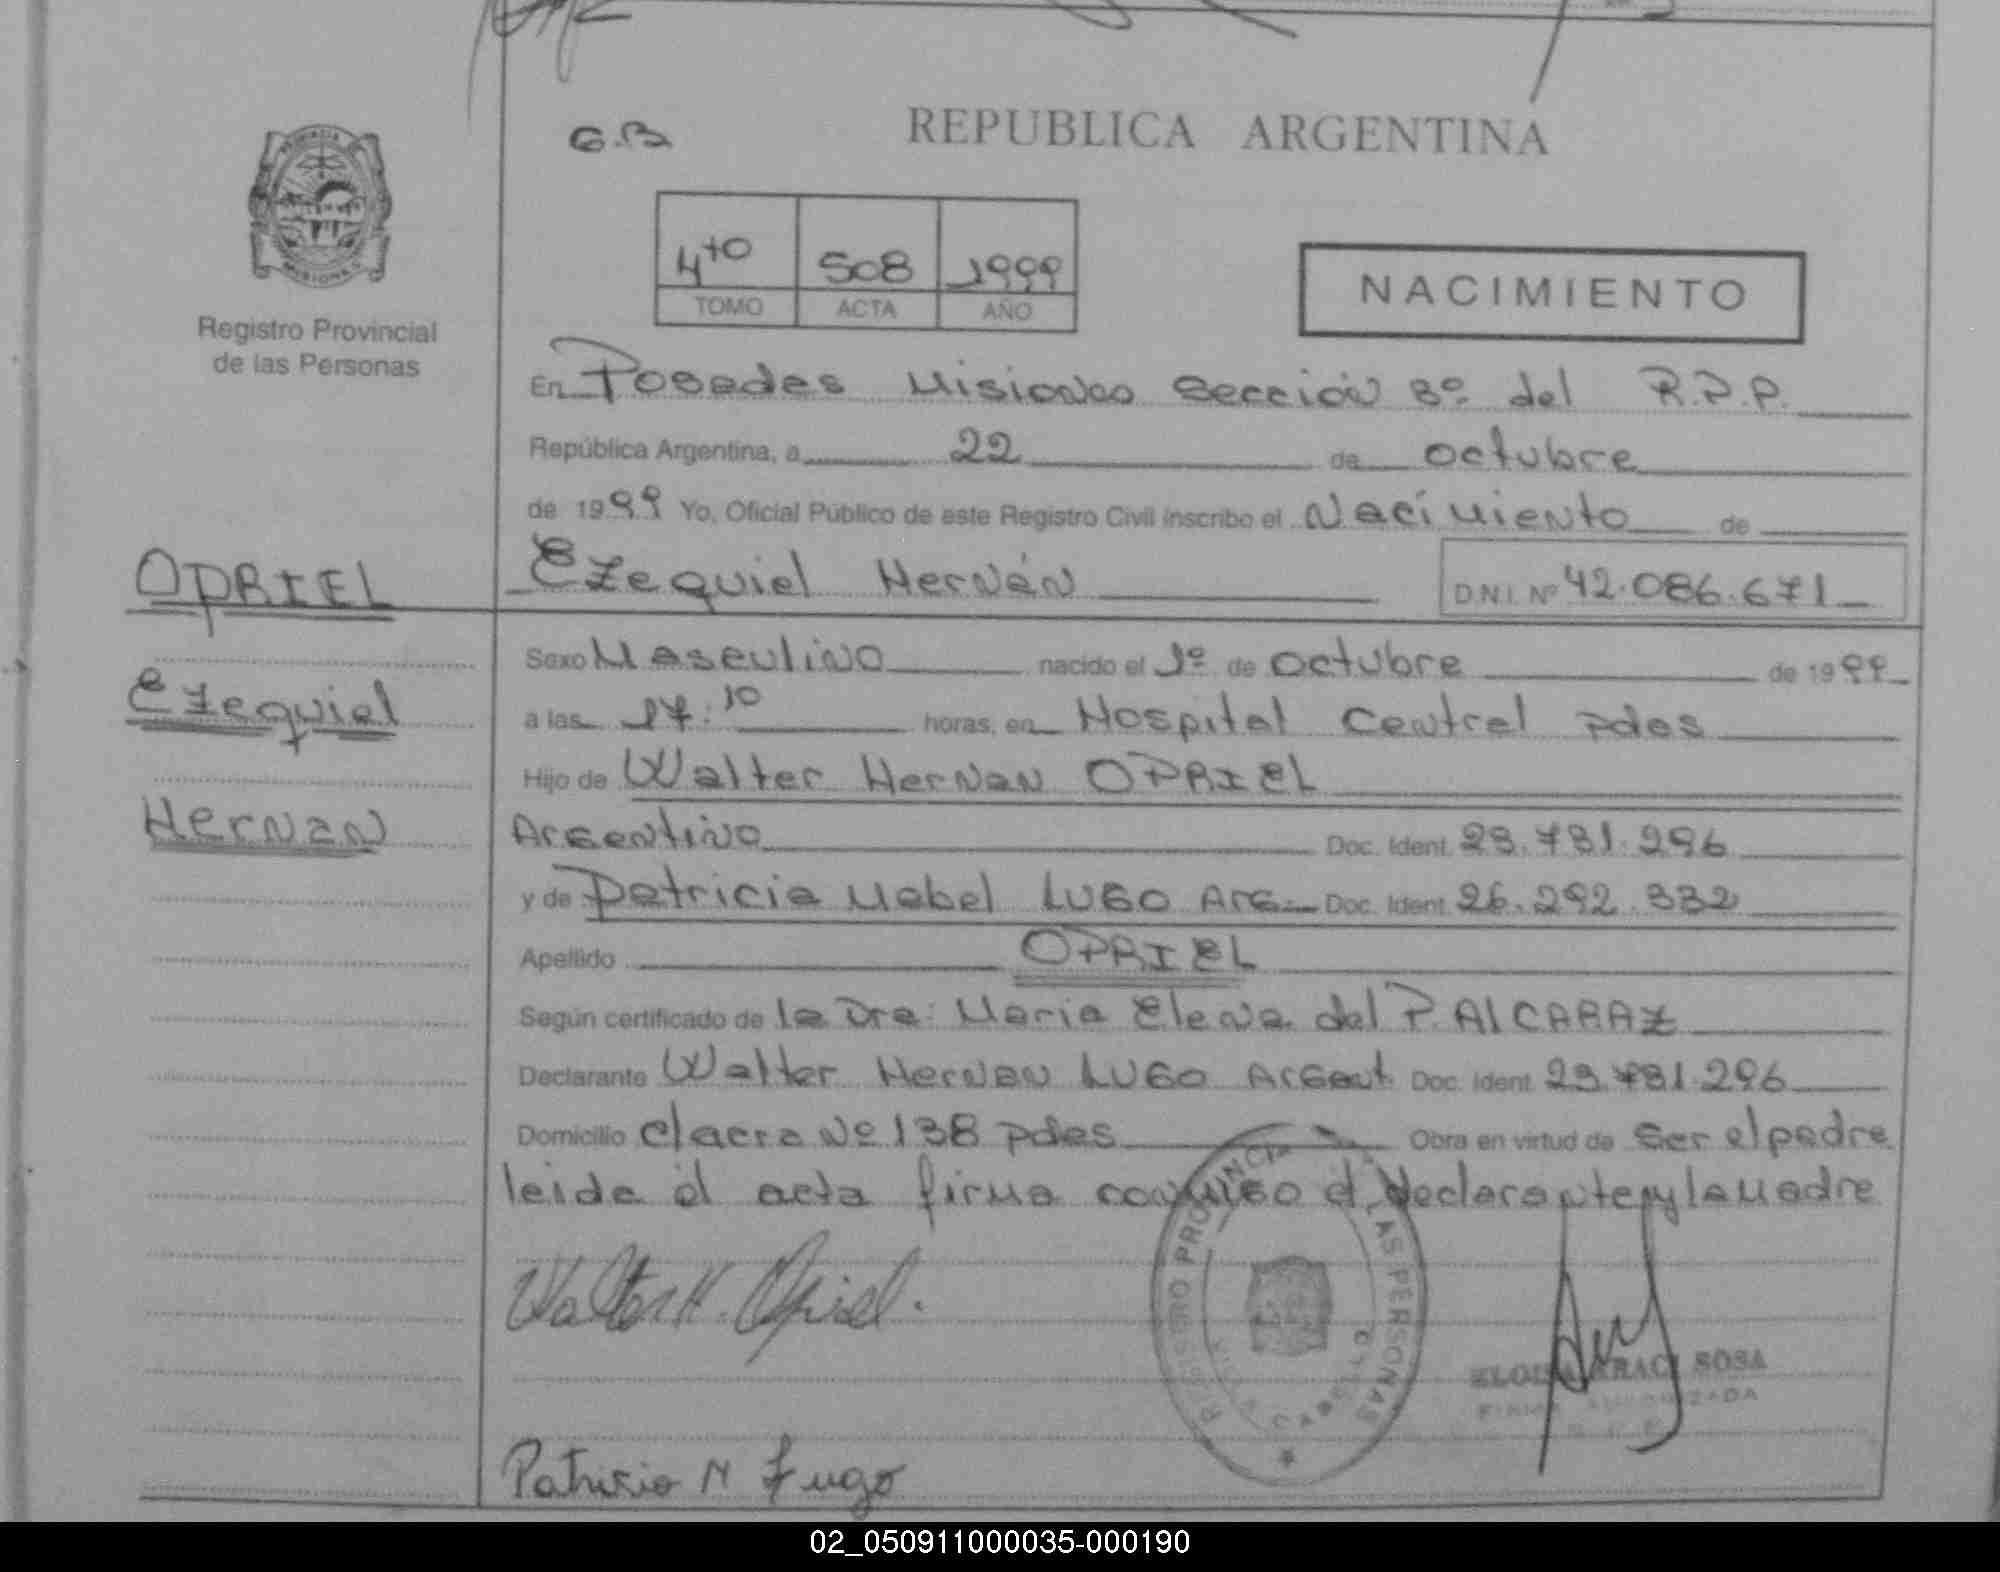 G.B
REPUBLICA ARGENTINA
4to 508 1999
TOMO ACTA AÑO
NACIMIENTO
Registro Provincial
de las Personas
En Posadas Misiones Sección 3º del R.P.P.
República Argentina, a 22 de octubre
de 1999 Yo, Oficial Público de este Registro Civil inscribo el Nacimiento de
Ezequiel Hernán D.N.I. Nº 42.086.671
OPRIEL
Ezequiel
Hernan
Sexo Masculino nacido el 1º de octubre de 1999
a las 17:10 horas, en Hospital Central pdas
Hijo de Walter Hernan OPRIEL
Argentino Doc. Ident. 23.731.296
y de Patricia Mabel LUGO Arg. Doc. Ident. 26.292.332
Apellido OPRIEL
Según certificado de la Dra: Maria Elena del P. ALCARAZ
Declarante Walter Hernan LUGO Argent. Doc. Ident. 23.731.296
Domicilio chacra Nº 138 pdas Obra en virtud de ser el padre
leida el acta firma conmigo el declarante y la Madre
Walter H. Opriel.
REGISTRO PROVINCIAL LAS PERSONAS
SOSA
FIRMA AUTORIZADA
Patricia M Lugo
02_050911000035-000190